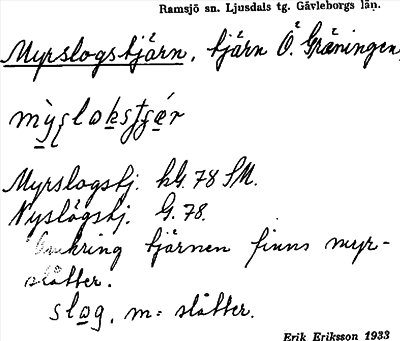 Ramsjö sn. Ljusdals tg. Gävleborgs län.
Myrslogstjärn, tjärn Ö. Gräningen,
Myrslogstj. kG. 78 SM.
Nyslögstj. G. 78.
Omkring tjärnen finns myr-
slåtter.
slog, m = slåtter.
Erik Eriksson 1933